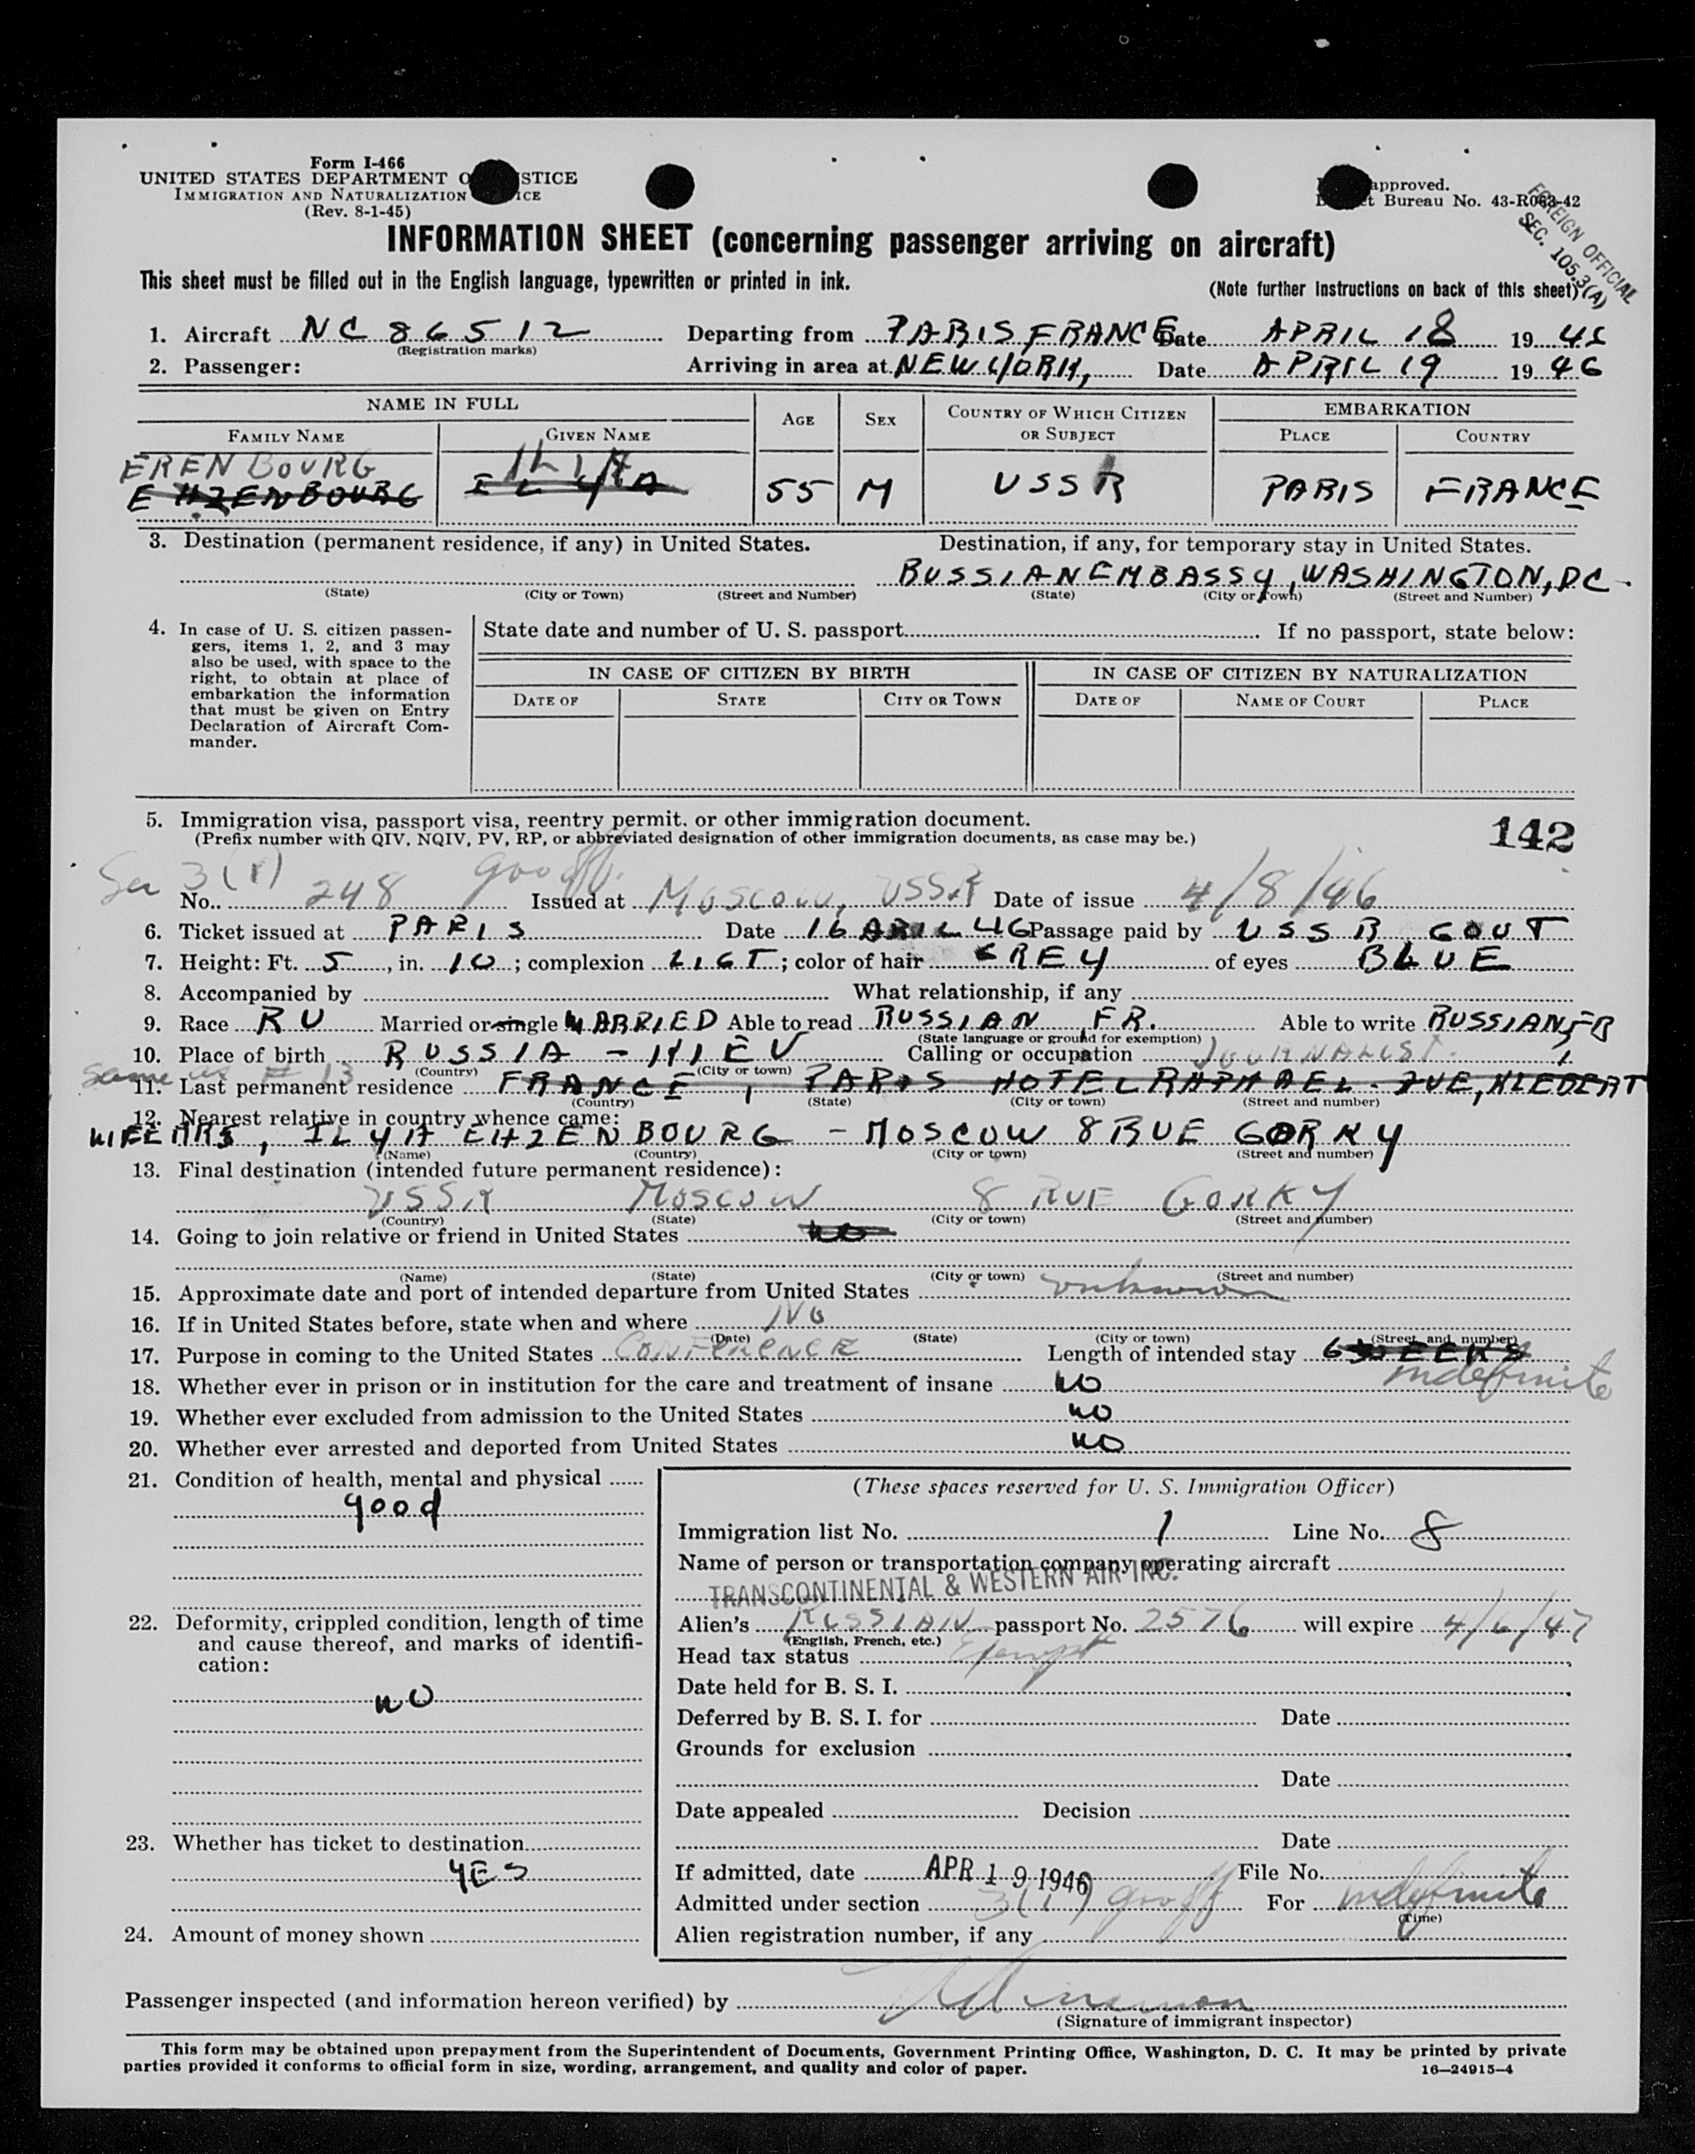 Form I-466
UNITED STATES DEPARTMENT O STICE
IMMIGRATION AND NATURALIZATION ICE
(Rev. 8-1-45)
approved.
t Bureau No. 43-R063-42
FOREIGN OFFICIAL
SEC. 105.3(A)
INFORMATION SHEET (concerning passenger arriving on aircraft)
This sheet must be filled out in the English language, typewritten or printed in ink.
(Note further instructions on back of this sheet)
1. Aircraft NC 86512 Departing from PARIS FRANCE Date APRIL 18 19 46
(Registration marks)
2. Passenger: Arriving in area at NEW YORK, Date APRIL 19 19 46
NAME IN FULL AGE SEX COUNTRY OF WHICH CITIZEN OR SUBJECT EMBARKATION
FAMILY NAME GIVEN NAME PLACE COUNTRY
ERENBOURG ILYA
EHZENBOURG ILYA 55 M USSR PARIS FRANCE
3. Destination (permanent residence, if any) in United States. Destination, if any, for temporary stay in United States.
RUSSIAN EMBASSY, WASHINGTON, DC
(State) (City or Town) (Street and Number) (State) (City or Town) (Street and Number)
4. In case of U. S. citizen passen-
gers, items 1, 2, and 3 may
also be used, with space to the
right, to obtain at place of
embarkation the information
that must be given on Entry
Declaration of Aircraft Com-
mander.
State date and number of U. S. passport If no passport, state below:
IN CASE OF CITIZEN BY BIRTH IN CASE OF CITIZEN BY NATURALIZATION
DATE OF STATE CITY OR TOWN DATE OF NAME OF COURT PLACE
5. Immigration visa, passport visa, reentry permit, or other immigration document.
(Prefix number with QIV, NQIV, PV, RP, or abbreviated designation of other immigration documents, as case may be.)
142
3(1)
No. 248 Issued at Moscow, USSR Date of issue 4/8/46
6. Ticket issued at PARIS Date 16 APRIL 46 Passage paid by USSR GOUT
7. Height: Ft. 5, in. 10; complexion LIGT; color of hair GREY of eyes BLUE
8. Accompanied by What relationship, if any
9. Race RU Married or single MARRIED Able to read RUSSIAN, FR. Able to write RUSSIAN, FR
(State language or ground for exemption)
10. Place of birth RUSSIA - KIEV Calling or occupation JOURNALIST.
(Country) (City or town)
Same as # 13
11. Last permanent residence FRANCE, PARIS HOTEL RAPHAEL. AVE, KLEBERT
(Country) (State) (City or town) (Street and number)
12. Nearest relative in country whence came:
WIFE MRS, ILYA EHZENBOURG - MOSCOW 8 RUE GORKY
(Name) (Country) (City or town) (Street and number)
13. Final destination (intended future permanent residence):
USSR MOSCOW 8 RUE GORKY
(Country) (State) (City or town) (Street and number)
14. Going to join relative or friend in United States no
(Name) (State) (City or town) (Street and number)
15. Approximate date and port of intended departure from United States unknown
16. If in United States before, state when and where NO
(Date) (State) (City or town) (Street and number)
17. Purpose in coming to the United States CONFERENCE Length of intended stay 6 WEEKS
indefinite
18. Whether ever in prison or in institution for the care and treatment of insane NO
19. Whether ever excluded from admission to the United States NO
20. Whether ever arrested and deported from United States NO
21. Condition of health, mental and physical
good
22. Deformity, crippled condition, length of time
and cause thereof, and marks of identifi-
cation:
NO
23. Whether has ticket to destination
YES
24. Amount of money shown
(These spaces reserved for U. S. Immigration Officer)
Immigration list No. 1 Line No. 8
Name of person or transportation company operating aircraft
TRANSCONTINENTAL & WESTERN AIR INC.
Alien's RUSSIAN passport No. 2576 will expire 4/6/47
(English, French, etc.)
Head tax status Exempt
Date held for B. S. I.
Deferred by B. S. I. for Date
Grounds for exclusion
Date
Date appealed Decision
Date
If admitted, date APR 19 1946 File No.
Admitted under section 3(1) For indefinite
(Time)
Alien registration number, if any
Passenger inspected (and information hereon verified) by
(Signature of immigrant inspector)
This form may be obtained upon prepayment from the Superintendent of Documents, Government Printing Office, Washington, D. C. It may be printed by private
parties provided it conforms to official form in size, wording, arrangement, and quality and color of paper. 16—24915-4